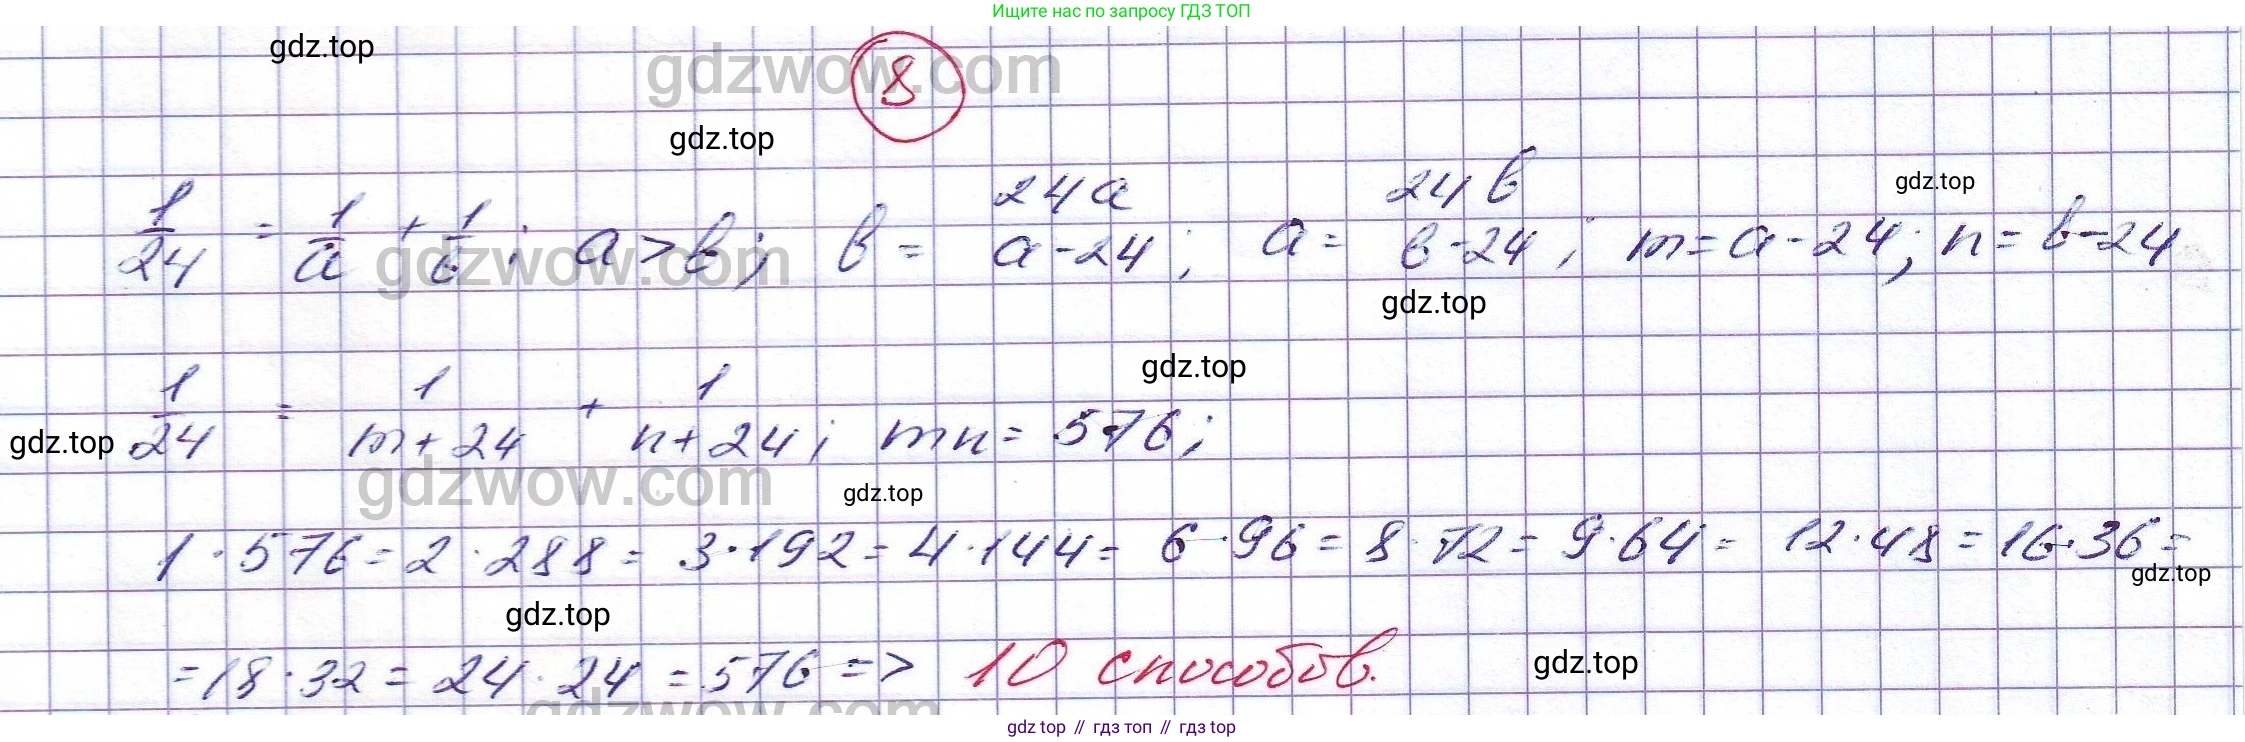 Ищите нас по запросу ГДЗ ТОП
gdz.top
gdzwow.com
8
gdz.top
1/24 = 1/a + 1/b; a > b; b = 24a/(a-24); a = 24b/(b-24); m = a - 24; n = b - 24
gdz.top
gdzwow.com
gdz.top
gdz.top
1/24 = 1/(m+24) + 1/(n+24); mn = 576;
gdz.top
gdzwow.com
gdz.top
1·576 = 2·288 = 3·192 = 4·144 = 6·96 = 8·72 = 9·64 = 12·48 = 16·36 =
gdz.top
gdz.top
= 18·32 = 24·24 = 576 => 10 способов.
gdz.top
gdzwow.com
gdz top // гдз топ // гдз top